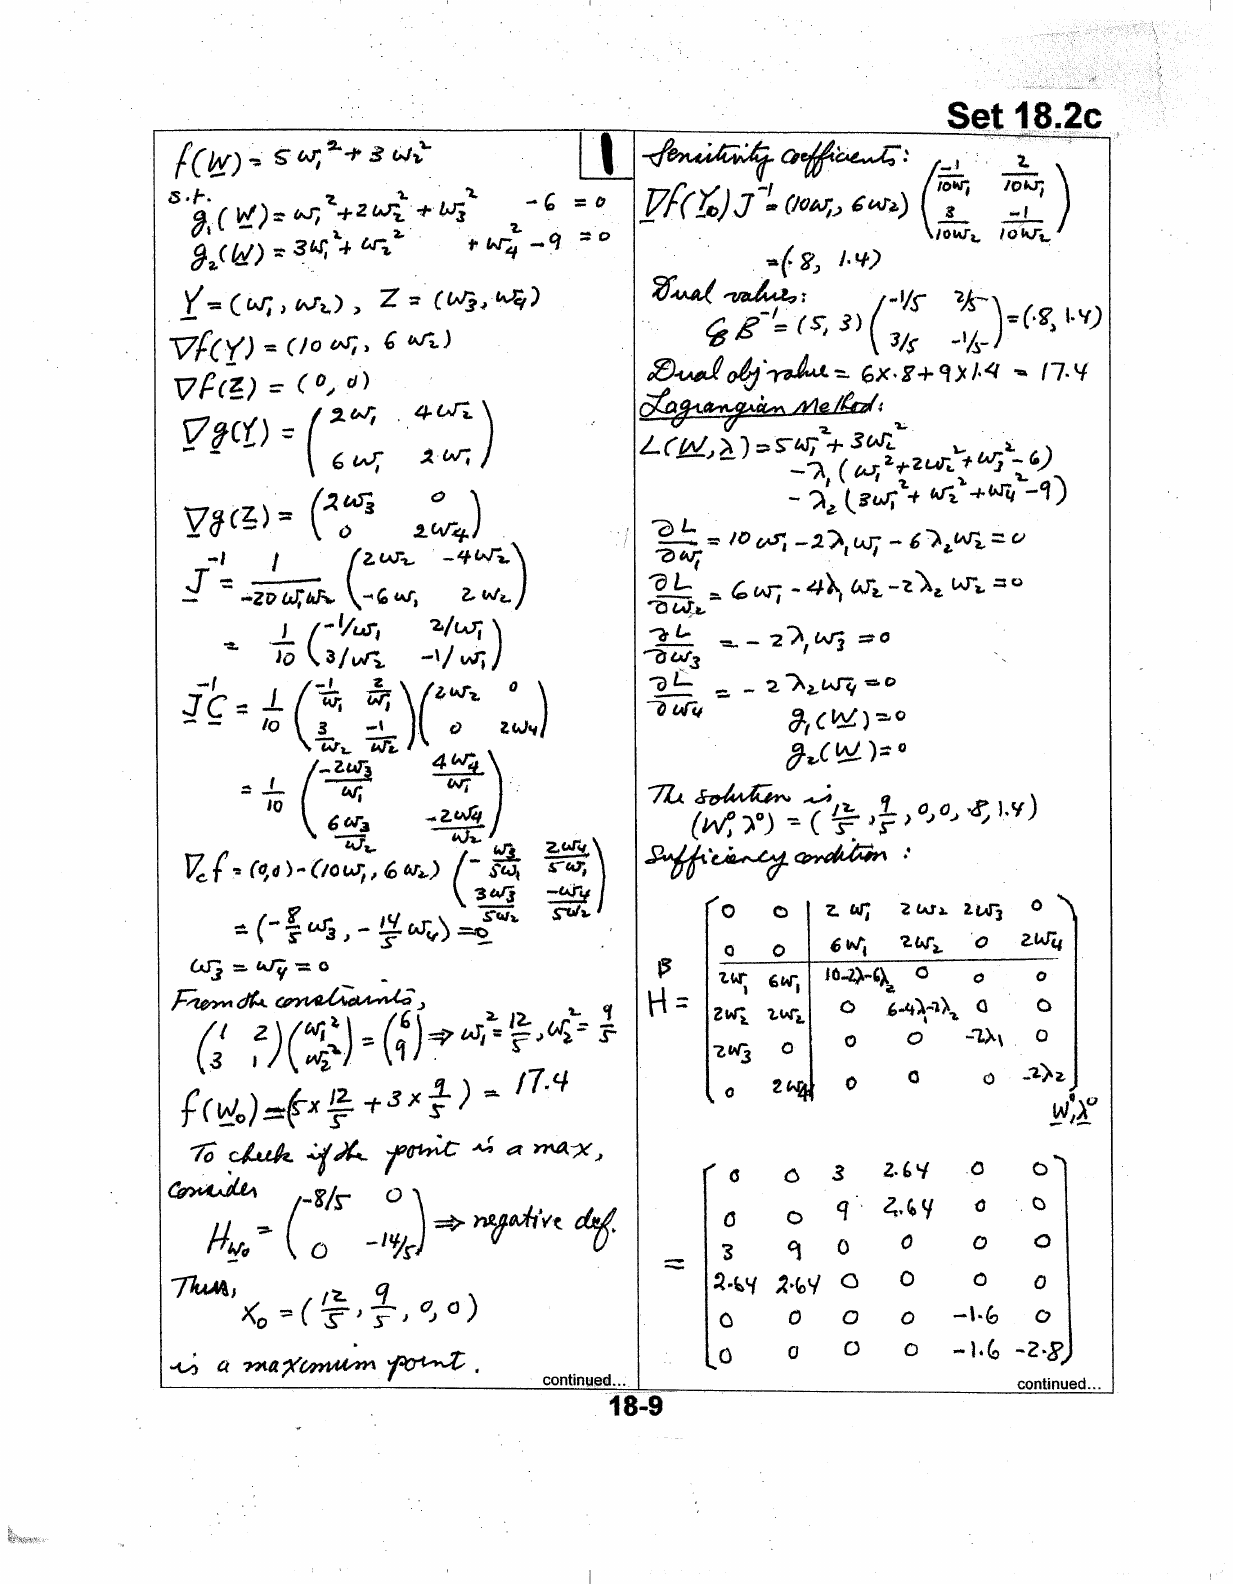 Set 18.2c
f(W) = 5w₁² + 3w₂²
1
s.t.
g₁(W) = w₁² + 2w₂² + w₃² - 6 = 0
g₂(W) = 3w₁² + w₂² + w₄² - 9 = 0
Y = (w₁, w₂), Z = (w₃, w₄)
∇f(Y) = (10w₁, 6w₂)
∇f(Z) = (0, 0)
∇g(Y) = ( 2w₁ 4w₂
6w₁ 2w₁ )
∇g(Z) = ( 2w₃ 0
0 2w₄ )
J⁻¹ = 1/(-20w₁w₂) ( 2w₂ -4w₂
-6w₁ 2w₂ )
= 1/10 ( -1/w₁ 2/w₁
3/w₂ -1/w₁ )
J⁻¹C = 1/10 ( -1/w₁ 2/w₁
3/w₂ -1/w₂ ) ( 2w₂ 0
0 2w₄ )
= 1/10 ( -2w₃/w₁ 4w₄/w₁
6w₃/w₂ -2w₄/w₂ )
∇cf = (0,0) - (10w₁, 6w₂) ( -w₃/5w₁ 2w₄/5w₁
3w₃/5w₂ -w₄/5w₂ )
= (-8/5 w₃, -14/5 w₄) = 0
w₃ = w₄ = 0
From the constraints,
( 1 2
3 1 ) ( w₁²
w₂² ) = ( 6
9 ) ⇒ w₁² = 12/5, w₂² = 9/5
f(W₀) = (5 x 12/5 + 3 x 9/5) = 17.4
To check if the point is a max,
consider
H_W₀ = ( -8/5 0
0 -14/5 ) ⇒ negative def.
Thus,
X₀ = (12/5, 9/5, 0, 0)
is a maximum point.
continued...
Sensitivity coefficients:
∇f(Y₀)J⁻¹ = (10w₁, 6w₂) ( -1/10w₁ 2/10w₁
3/10w₂ -1/10w₂ )
= (.8, 1.4)
Dual values:
C_B B⁻¹ = (5, 3) ( -1/5 2/5
3/5 -1/5 ) = (.8, 1.4)
Dual obj value = 6x.8 + 9x1.4 = 17.4
Lagrangian Method:
L(W, λ) = 5w₁² + 3w₂²
- λ₁(w₁² + 2w₂² + w₃² - 6)
- λ₂(3w₁² + w₂² + w₄² - 9)
∂L/∂w₁ = 10w₁ - 2λ₁w₁ - 6λ₂w₂ = 0
∂L/∂w₂ = 6w₁ - 4λ₁w₂ - 2λ₂w₂ = 0
∂L/∂w₃ = -2λ₁w₃ = 0
∂L/∂w₄ = -2λ₂w₄ = 0
g₁(W) = 0
g₂(W) = 0
The solution is
(W⁰, λ⁰) = (12/5, 9/5, 0, 0, .8, 1.4)
Sufficiency condition:
0 0 2w₁ 2w₂ 2w₃ 0
0 0 6w₁ 2w₂ 0 2w₄
Hᴮ =
2w₁ 6w₁ 10-2λ-6λ₂ 0 0 0
2w₂ 2w₂ 0 6-4λ₁-2λ₂ 0 0
2w₃ 0 0 0 -2λ₁ 0
0 2w₄ 0 0 0 -2λ₂
W⁰, λ⁰
0 0 3 2.64 0 0
0 0 9 2.64 0 0
=
3 9 0 0 0 0
2.64 2.64 0 0 0 0
0 0 0 0 -1.6 0
0 0 0 0 -1.6 -2.8
continued...
18-9